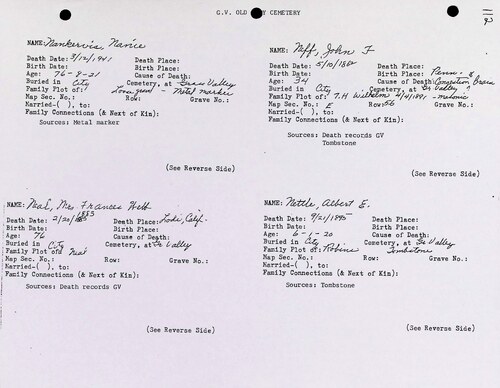 G.V. OLD CEMETERY
NAME: Nankervis, Narice
Death Date: 3/12/1941 Death Place:
Birth Date: Birth Place:
Age: 76-8-21 Cause of Death:
Buried in City Cemetery, at Grass Valley
Family Plot of: Lone grave - Metal marker
Map Sec. No.: Row: Grave No.:
Married-( ), to:
Family Connections (& Next of Kin):
Sources: Metal marker
(See Reverse Side)
NAME: Neff, John F
Death Date: 5/10/188 Death Place:
Birth Date: Birth Place: Penn.
Age: 34 Cause of Death: Congestion Brain
Buried in City Cemetery, at Gr Valley ?
Family Plot of: T.H Wilhelm 4/4/1891 - masonic
Map Sec. No.: E Row: 56 Grave No.:
Married-( ), to:
Family Connections (& Next of Kin):
Sources: Death records GV
Tombstone
(See Reverse Side)
NAME: Neal, Mrs Frances Webb
Death Date: 2/20/1885 1883 Death Place: Lodi, Calif.
Birth Date: Birth Place:
Age: 76 Cause of Death:
Buried in City Cemetery, at Gr Valley
Family Plot of: Neal
Map Sec. No.: Row: Grave No.:
Married-( ), to:
Family Connections (& Next of Kin):
Sources: Death records GV
(See Reverse Side)
NAME: Nettle, Albert E.
Death Date: 9/21/1895 Death Place:
Birth Date: Birth Place:
Age: 6-1-20 Cause of Death:
Buried in City Cemetery, at Gr Valley
Family Plot of: Robins Tombstone
Map Sec. No.: Row: Grave No.:
Married-( ), to:
Family Connections (& Next of Kin):
Sources: Tombstone
(See Reverse Side)